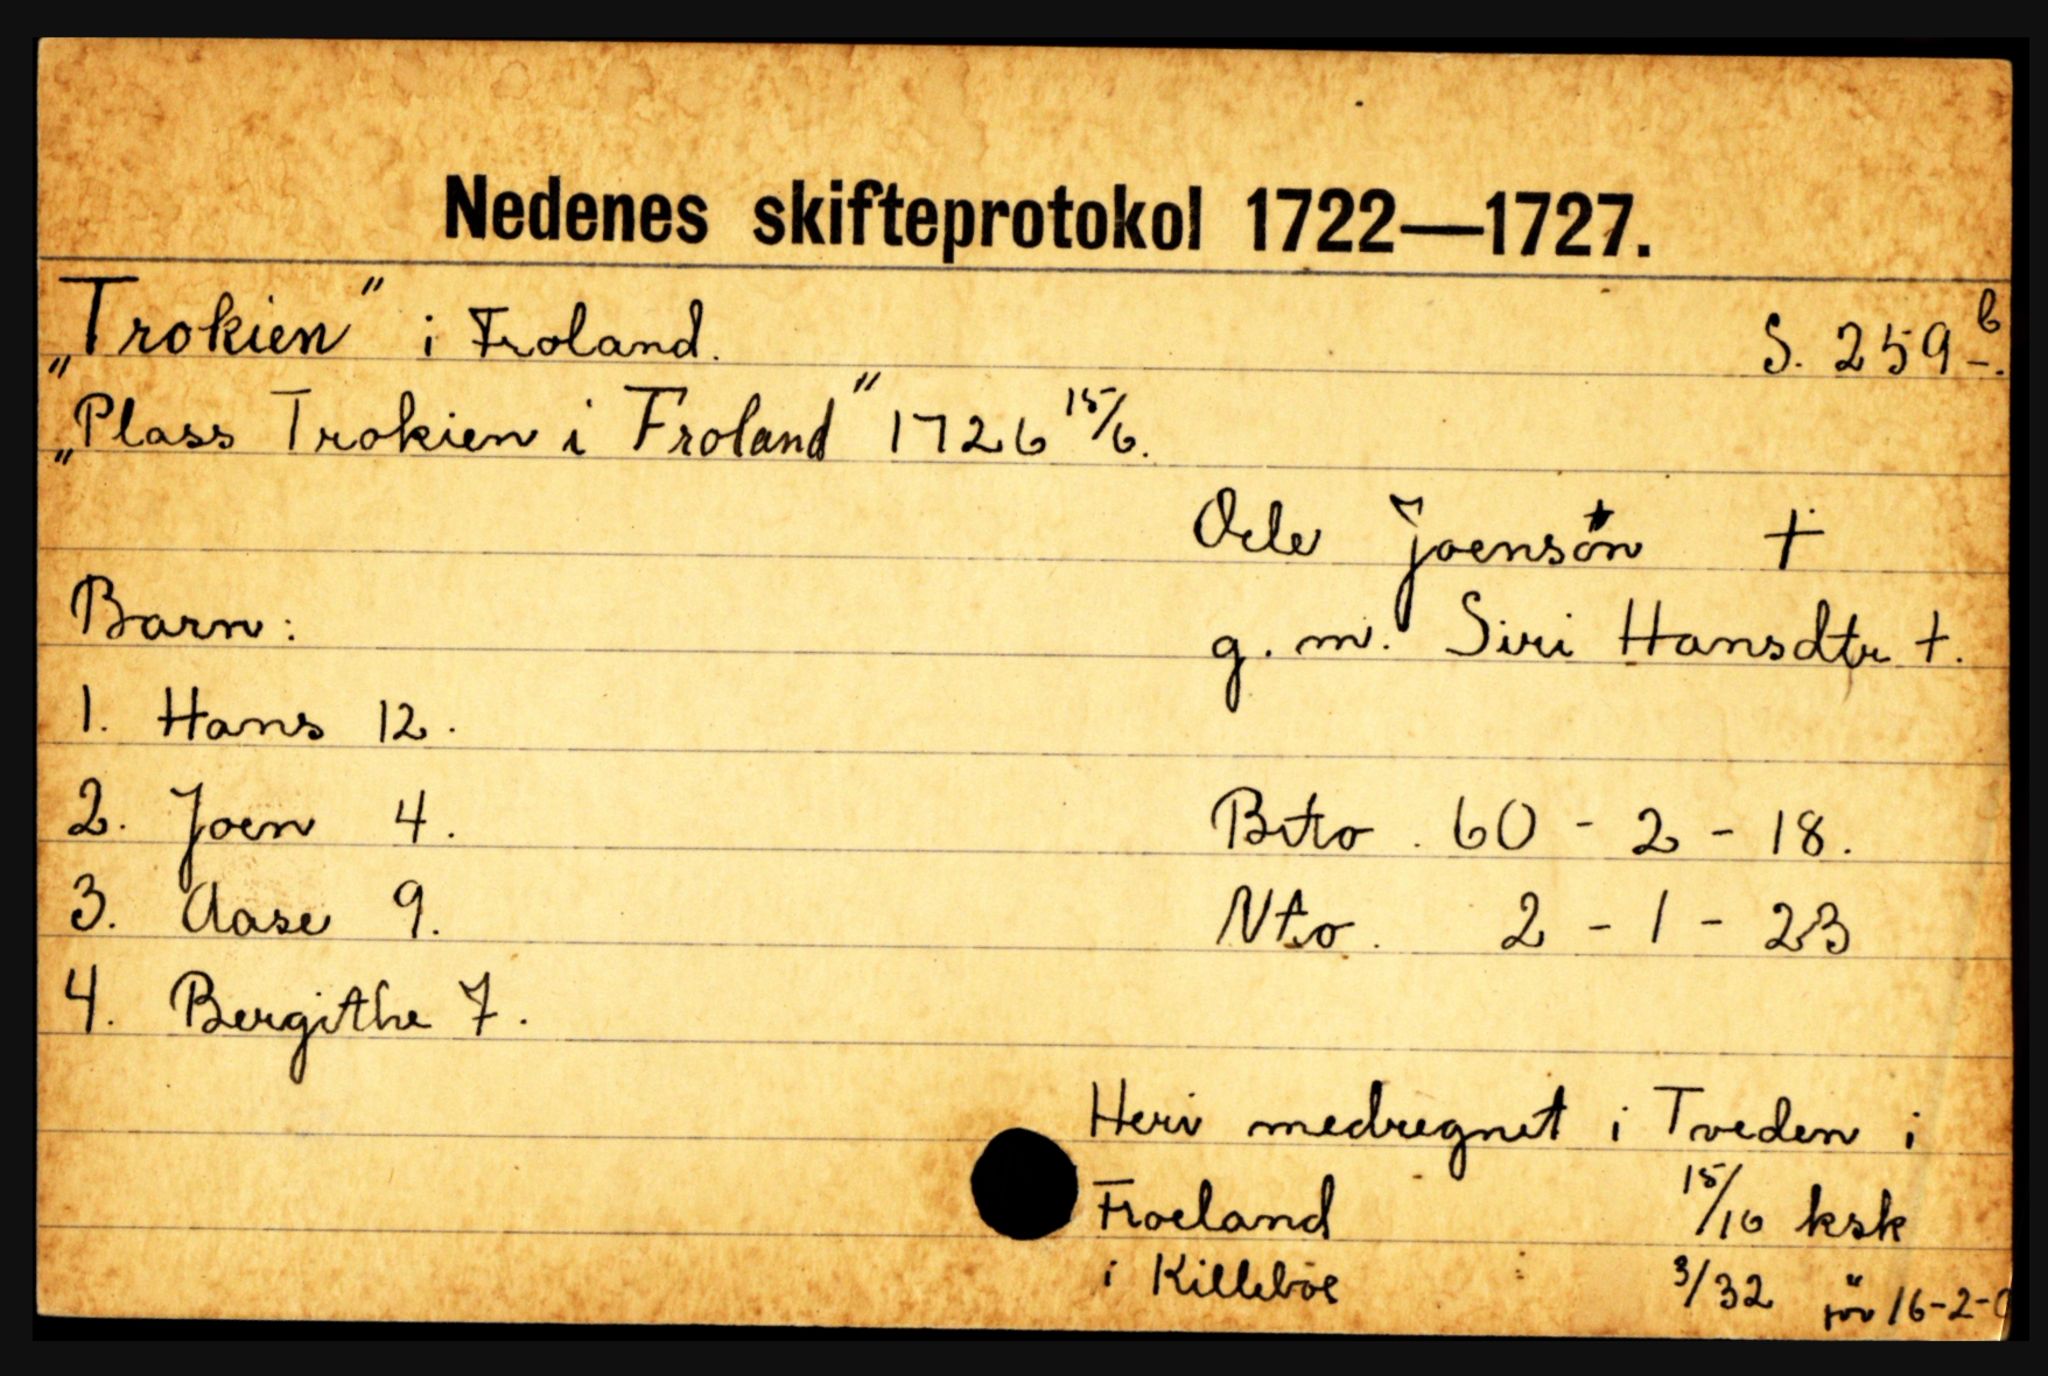 Nedenes skifteprotokol 1722—1727.
„Trokien" i Froland. S. 259 b.
„Plass Trokien i Froland" 1726 15/6.
Oele Joensøn +
Barn: g. m. Siri Hansdtr +.
1. Hans 12.
2. Joen 4. Brto. 60 - 2 - 18.
3. Aase 9. Nto. 2 - 1 - 23
4. Bergithe 7.
Heri medregnet i Tveden i
Froeland 15/16 ksk
i Killeboe 3/32 " för 16-2-0